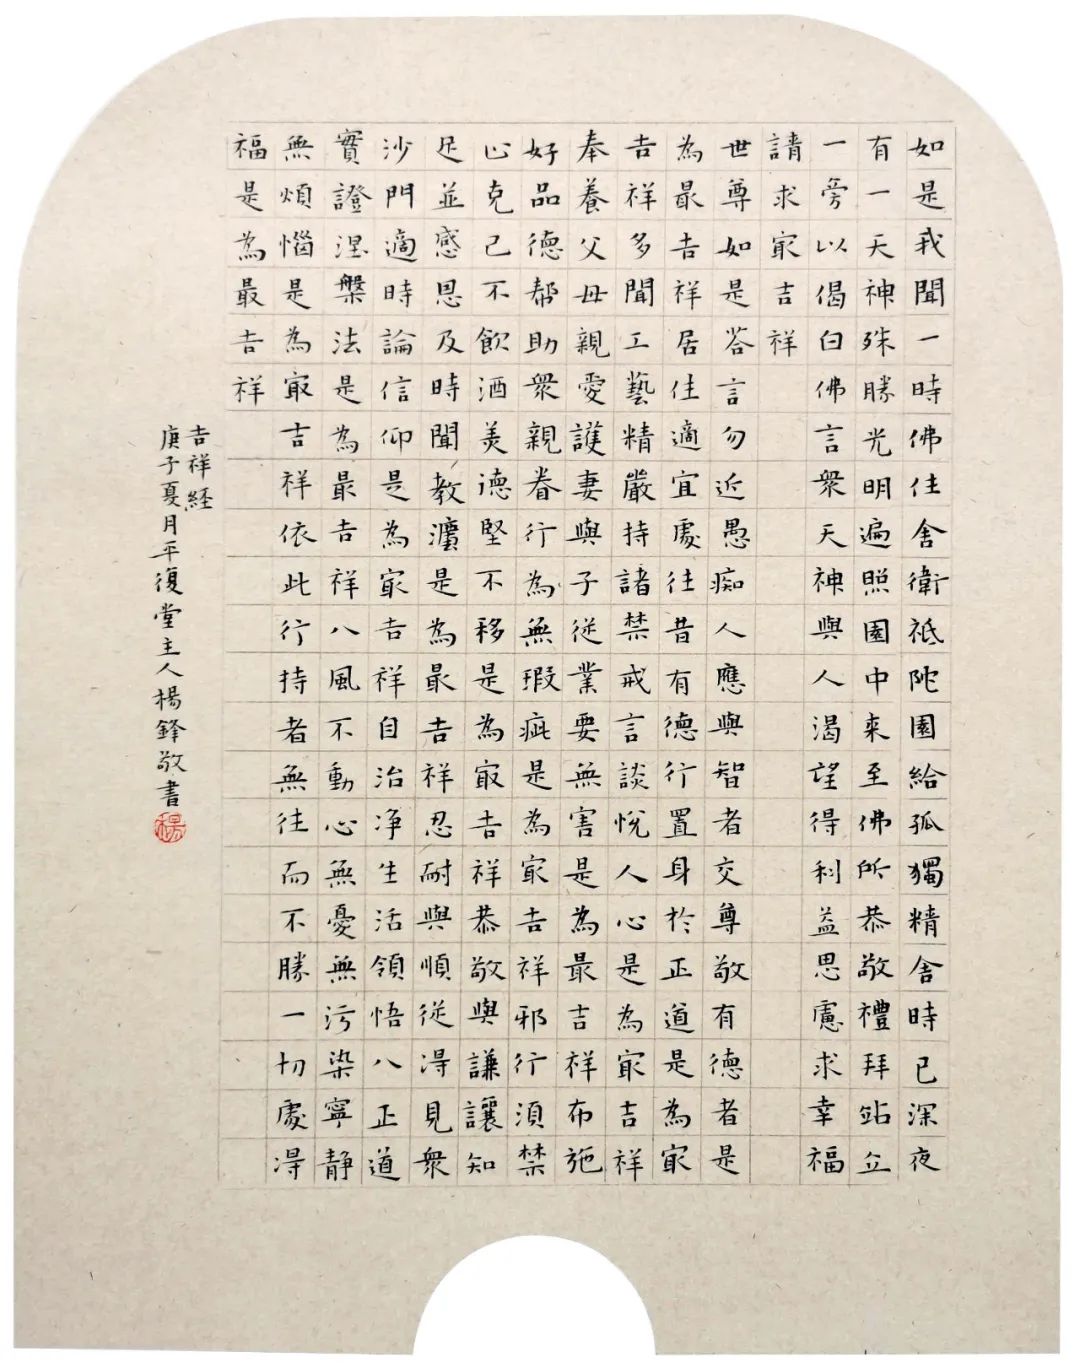 如是我聞一時佛住舍衛祗陀園給孤獨精舍時已深夜
有一天神殊勝光明遍照園中来至佛所恭敬禮拜站立
一旁以偈白佛言衆天神與人渴望得利益思慮求幸福
請求冣吉祥
世尊如是荅言勿近愚痴人應與智者交尊敬有德者是
為最吉祥居住適宜處往昔有德行置身於正道是為冣
吉祥多聞工藝精嚴持諸禁戒言談悅人心是為冣吉祥
奉養父母親愛護妻與子從業要無害是為最吉祥布施
好品德帮助衆親眷行為無瑕疵是為冣吉祥邪行須禁
止克己不飲酒美德堅不移是為冣吉祥恭敬與謙讓知
足並感恩及時聞教灋是為最吉祥忍耐與順從得見衆
沙門適時論信仰是為冣吉祥自治净生活領悟八正道
實證涅槃法是為最吉祥八風不動心無憂無污染寧静
無煩惱是為冣吉祥依此行持者無往而不勝一切處得
福是為最吉祥
吉祥経
庚子夏月平復堂主人楊鋒敬書
楊